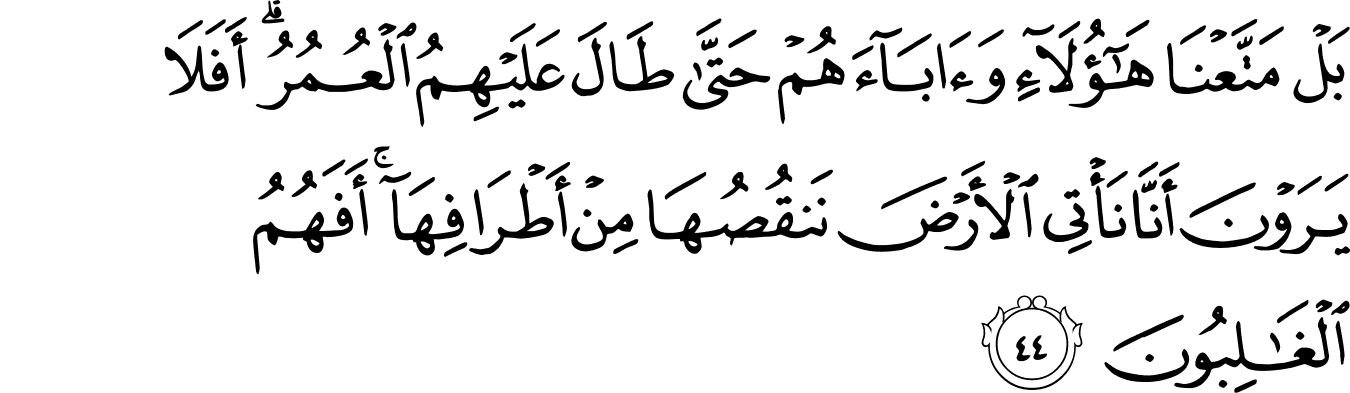 بَلۡ مَتَّعۡنَا هَٰٓؤُلَآءِ وَءَابَآءَهُمۡ حَتَّىٰ طَالَ عَلَيۡهِمُ ٱلۡعُمُرُۗ أَفَلَا
يَرَوۡنَ أَنَّا نَأۡتِي ٱلۡأَرۡضَ نَنقُصُهَا مِنۡ أَطۡرَافِهَآۚ أَفَهُمُ
ٱلۡغَٰلِبُونَ ٤٤